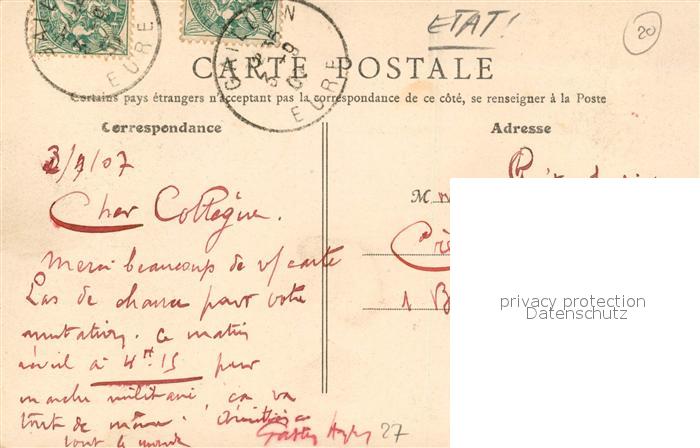 ETAT!
20
GAILLON
EURE
GAILLON
EURE
CARTE POSTALE
Certains pays étrangers n'acceptant pas la correspondance de ce côté, se renseigner à la Poste
Correspondance
Adresse
/07
M
Cher Collègue.
Merci beaucoup de v/ carte
Pas de chance pour votre
1 B
mutation. Ce matin
réveil à 4h 15 pour
marche militaire, ça va
tout de même.
tout le monde
27
privacy protection
Datenschutz